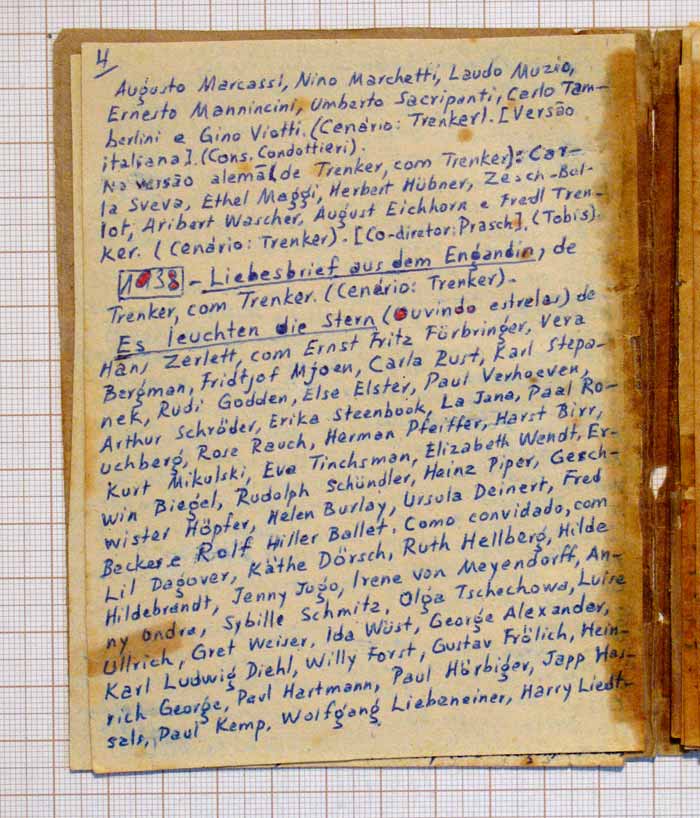 4
Augusto Marcassi, Nino Marchetti, Laudo Muzio,
Ernesto Mannincini, Umberto Sacripanti, Carlo Tam-
berlini e Gino Viotti. (Cenário: Trenker). [Versão
italiana]. (Cons. Condottieri).
Na versão alemã (de Trenker, com Trenker): Car-
la Sveva, Ethel Maggi, Herbert Hübner, Zesch-Bal-
lot, Aribert Wascher, August Eichhorn e Fredl Tren-
ker. (Cenário: Trenker). [Co-diretor: Prasch]. (Tobis).
1938 - Liebesbrief aus dem Engandin, de
Trenker, com Trenker. (Cenário: Trenker).
Es leuchten die Stern (Ouvindo estrelas) de
Hans Zerlett, com Ernst Fritz Fürbringer, Vera
Bergman, Fridtjof Mjoen, Carla Rust, Karl Stepa-
nek, Rudi Godden, Else Elster, Paul Verhoeven,
Arthur Schröder, Erika Steenbook, La Jana, Paal Ro-
uchberg, Rose Rauch, Herman Pfeiffer, Harst Birr,
Kurt Mikulski, Eva Tinchsman, Elizabeth Wendt, Er-
win Biegel, Rudolph Schündler, Heinz Piper, Gesch-
wister Höpfer, Helen Burlay, Ursula Deinert, Fred
Becker e Rolf Hiller Ballet. Como convidado, com
Lil Dagover, Käthe Dörsch, Ruth Hellberg, Hilde
Hildebrandt, Jenny Jugo, Irene von Meyendorff, An-
ny Ondra, Sybille Schmitz, Olga Tschechowa, Luise
Ullrich, Gret Weiser, Ida Wüst, George Alexander,
Karl Ludwig Diehl, Willy Forst, Gustav Frölich, Hein-
rich George, Paul Hartmann, Paul Hörbiger, Japp Has-
sals, Paul Kemp, Wolfgang Liebeneiner, Harry Liedt-